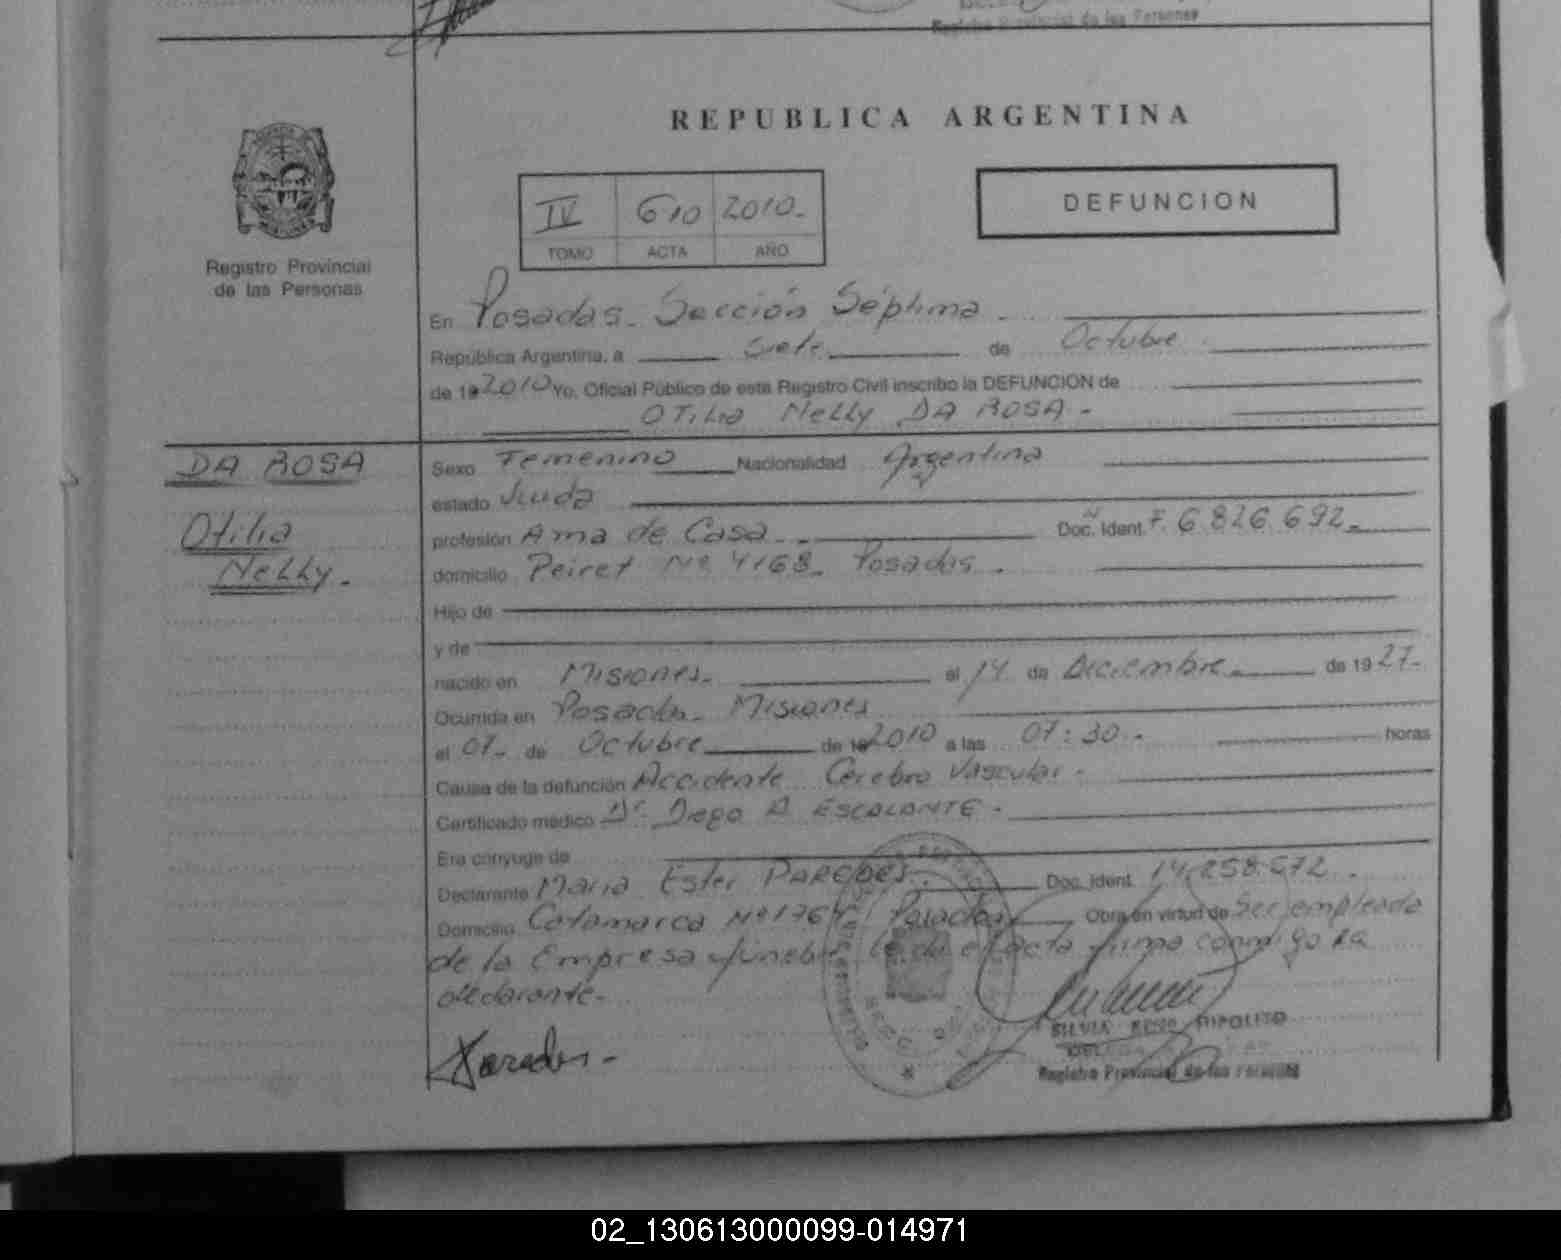 Registro Provincial de las Personas
REPUBLICA ARGENTINA
IV 610 2010.-
TOMO ACTA AÑO
DEFUNCION
Registro Provincial
de las Personas
En Posadas. Sección Séptima.
República Argentina, a Siete de Octubre.
de 19 2010 Yo, Oficial Público de este Registro Civil inscribo la DEFUNCION de
OTILIA NELLY DA ROSA.-
DA ROSA
Otilia
Nelly.-
Sexo Femenino Nacionalidad Argentina
estado Viuda
profesión Ama de Casa.- Doc. Ident. Nº F. 6.826.692.-
domicilio Peiret Nº 4168. Posadas.
Hijo de
y de
nacido en Misiones.- el 14 de Diciembre de 1927.-
Ocurrida en Posadas. Misiones
el 07- de Octubre de 19 2010 a las 07:30.- horas
Causa de la defunción Accidente Cerebro Vascular.-
Certificado médico Dr. Diego A ESCALANTE.-
Era cónyuge de
Declarante Maria Ester PAREDES. Doc. Ident. 14.258.572.
Domicilio Catamarca Posadas Obra en virtud de Ser empleada
de la Empresa fúnebre Leida el acta firma conmigo la
declarante.-
Paredes.-
SILVIA HIPOLITO
Registro Provincial de las Personas
02_130613000099-014971